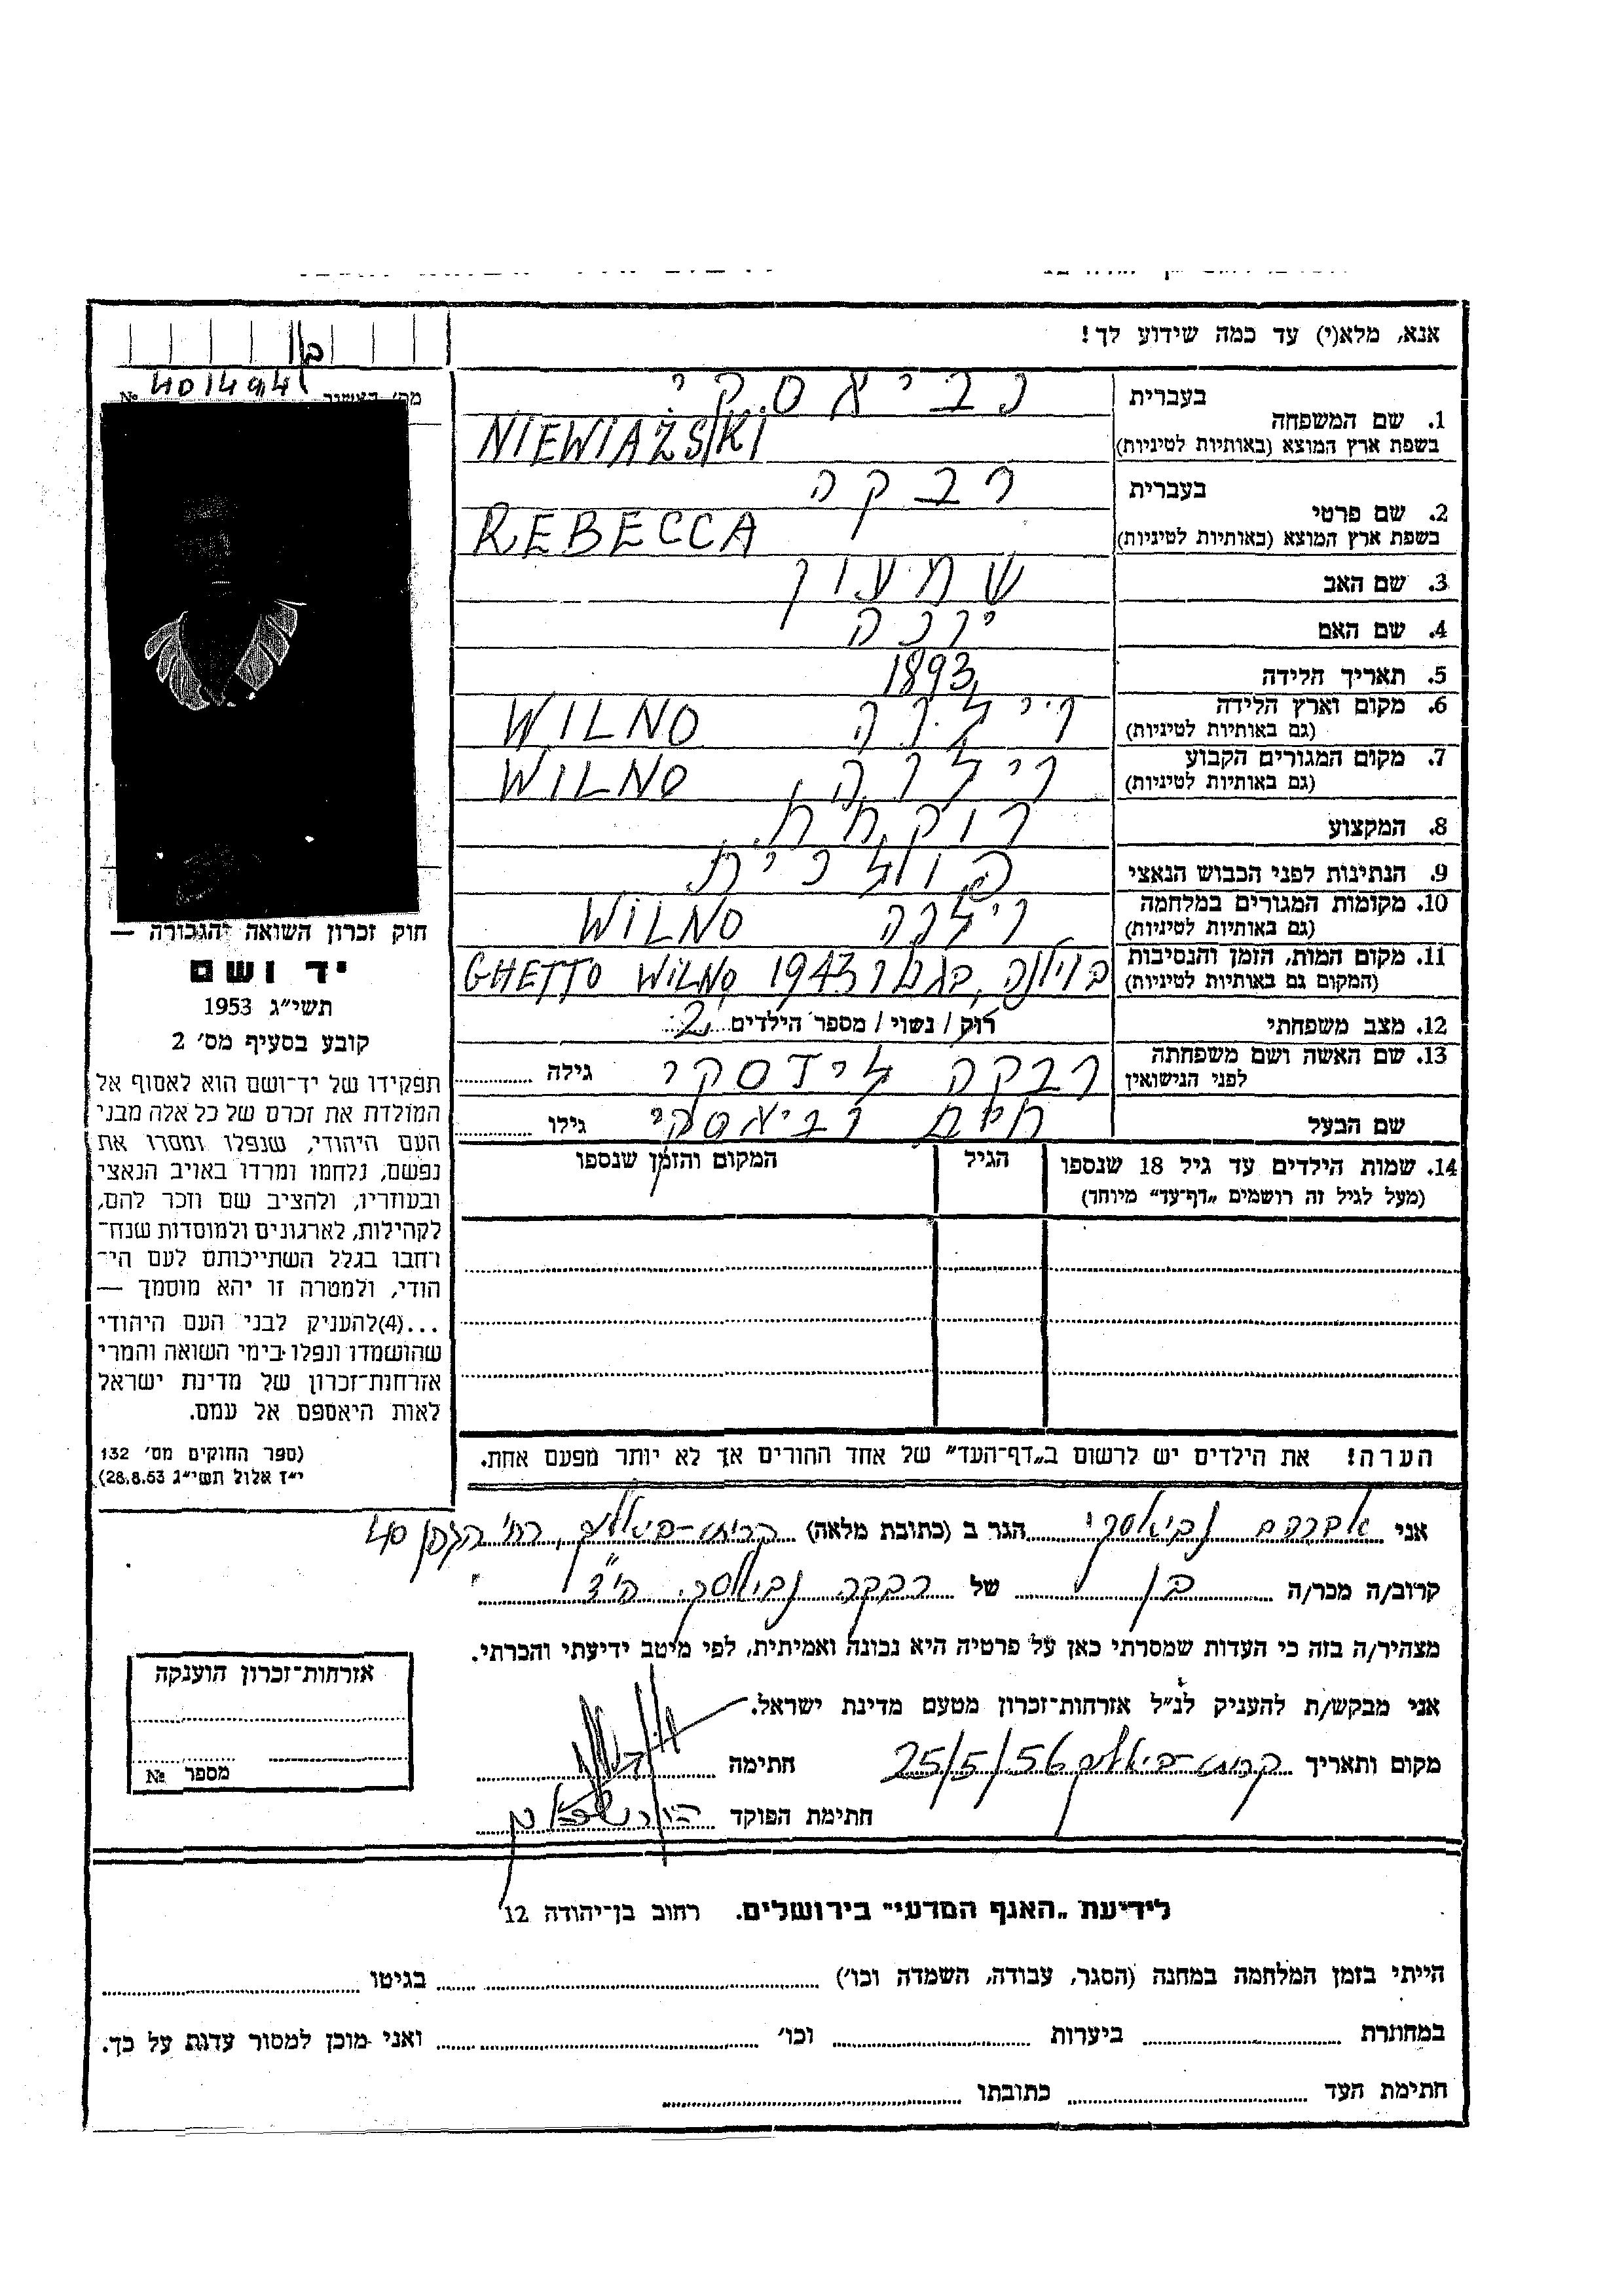 אנא, מלא(י) עד כמה שידוע לך!
401494
1. שם המשפחה
בעברית נביאסקי
בשפת ארץ המוצא (באותיות לטיניות) NIEWIAŻSKI
2. שם פרטי
בעברית רבקה
בשפת ארץ המוצא (באותיות לטיניות) REBECCA
3. שם האב שמעון
4. שם האם
5. תאריך הלידה 1893
6. מקום וארץ הלידה
(גם באותיות לטיניות) וילנה WILNO
7. מקום המגורים הקבוע
(גם באותיות לטיניות) וילנה WILNO
8. המקצוע רוקחת
9. הנתינות לפני הכבוש הנאצי פולנית
10. מקומות המגורים במלחמה
(גם באותיות לטיניות) וילנה WILNO
11. מקום המות, הזמן והנסיבות
(המקום גם באותיות לטיניות) בוילנה, בגטו 1943 GHETTO WILNO
12. מצב משפחתי רוק / נשוי / מספר הילדים 2
13. שם האשה ושם משפחתה
לפני הנישואין רבקה לידסקי גילה
שם הבעל חיים נביאסקי גילו
14. שמות הילדים עד גיל 18 שנספו הגיל המקום והזמן שנספו
(מעל לגיל זה רושמים „דף-עד” מיוחד)
הערה! את הילדים יש לרשום ב„דף-העד” של אחד ההורים אך לא יותר מפעם אחת.
חוק זכרון השואה והגבורה —
יד ושם
תשי״ג 1953
קובע בסעיף מס׳ 2
תפקידו של יד-ושם הוא לאסוף אל
המולדת את זכרם של כל אלה מבני
העם היהודי, שנפלו ומסרו את
נפשם, נלחמו ומרדו באויב הנאצי
ובעוזריו, ולהציב שם וזכר להם,
לקהילות, לארגונים ולמוסדות שנח-
רחבו בגלל השתייכותם לעם הי-
הודי, ולמטרה זו יהא מוסמך —
...(4)להעניק לבני העם היהודי
שהושמדו ונפלו בימי השואה והמרי
אזרחות-זכרון של מדינת ישראל
לאות היאספם אל עמם.
(ספר החוקים מס׳ 132
י״ז אלול תשי״ג 28.8.53)
אני אברהם נביאסקי הגר ב (כתובת מלאה) קרית-ביאליק, רח׳ הגפן 40
קרוב/ה מכר/ה בן של רבקה נביאסקי הי״ד
מצהיר/ה בזה כי העדות שמסרתי כאן על פרטיה היא נכונה ואמיתית, לפי מיטב ידיעתי והכרתי.
אני מבקש/ת להעניק לנ״ל אזרחות-זכרון מטעם מדינת ישראל.
מקום ותאריך קרית-ביאליק 25/5/56 חתימה
חתימת הפוקד
אזרחות-זכרון הוענקה
מספר №
לידיעת „האגף המדעי” בירושלים. רחוב בן-יהודה 12
הייתי בזמן המלחמה במחנה (הסגר, עבודה, השמדה וכו׳) בגיטו
במחתרת ביערות וכו׳ ואני מוכן למסור עדות על כך.
חתימת העד כתובתו